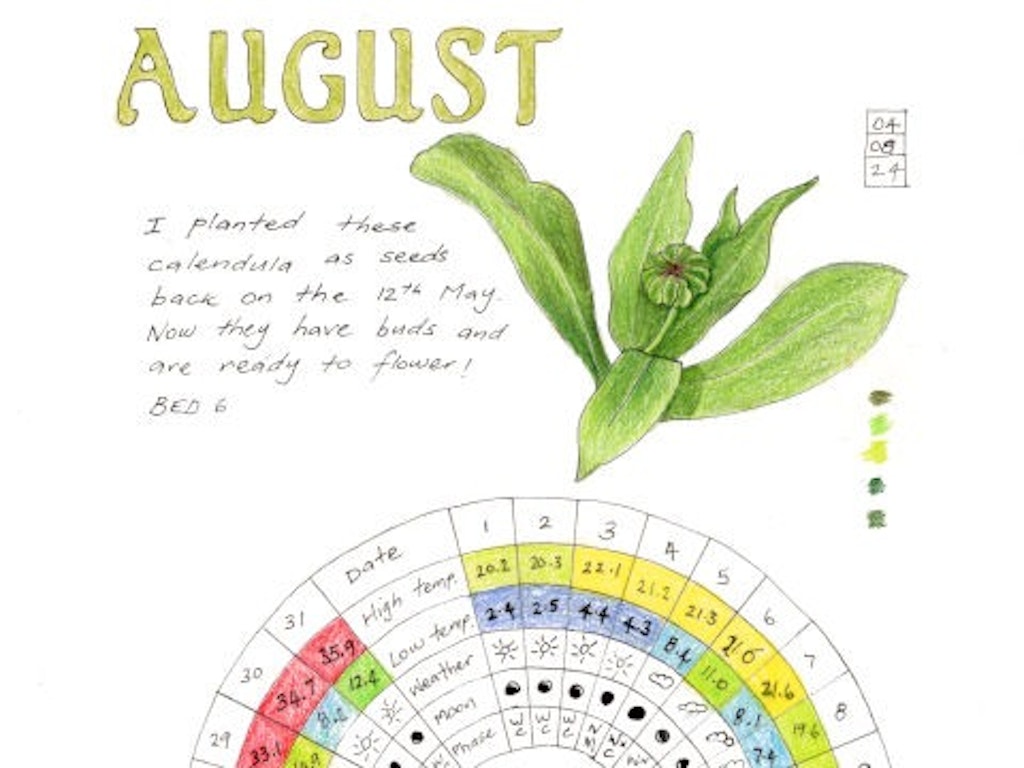 AUGUST
04
08
24
I planted these
calendula as seeds
back on the 12th May.
Now they have buds and
are ready to flower!
BED 6
Date 1 2 3 4 5 6 7 8
High temp. 20.2 20.3 22.1 21.2 21.3 21.6 19.6
Low temp. 2.4 2.5 4.4 4.3 8.4 11.0 8.1 7.4
Weather
Moon
Phase WC WC WC NM
31 35.9 12.4
30 34.7 8.2
29 33.1